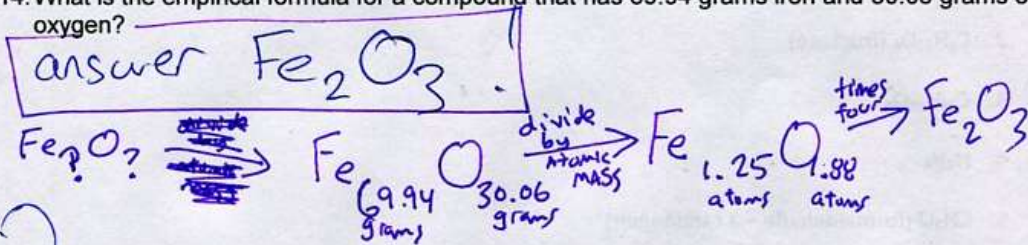 14. What is the empirical formula for a compound that has 69.94 grams iron and 30.06 grams o
oxygen?
answer Fe₂O₃.
Fe?O? → Fe 69.94 grams O 30.06 grams divide by Atomic MASS → Fe 1.25 atoms O 1.88 atoms times four → Fe₂O₃